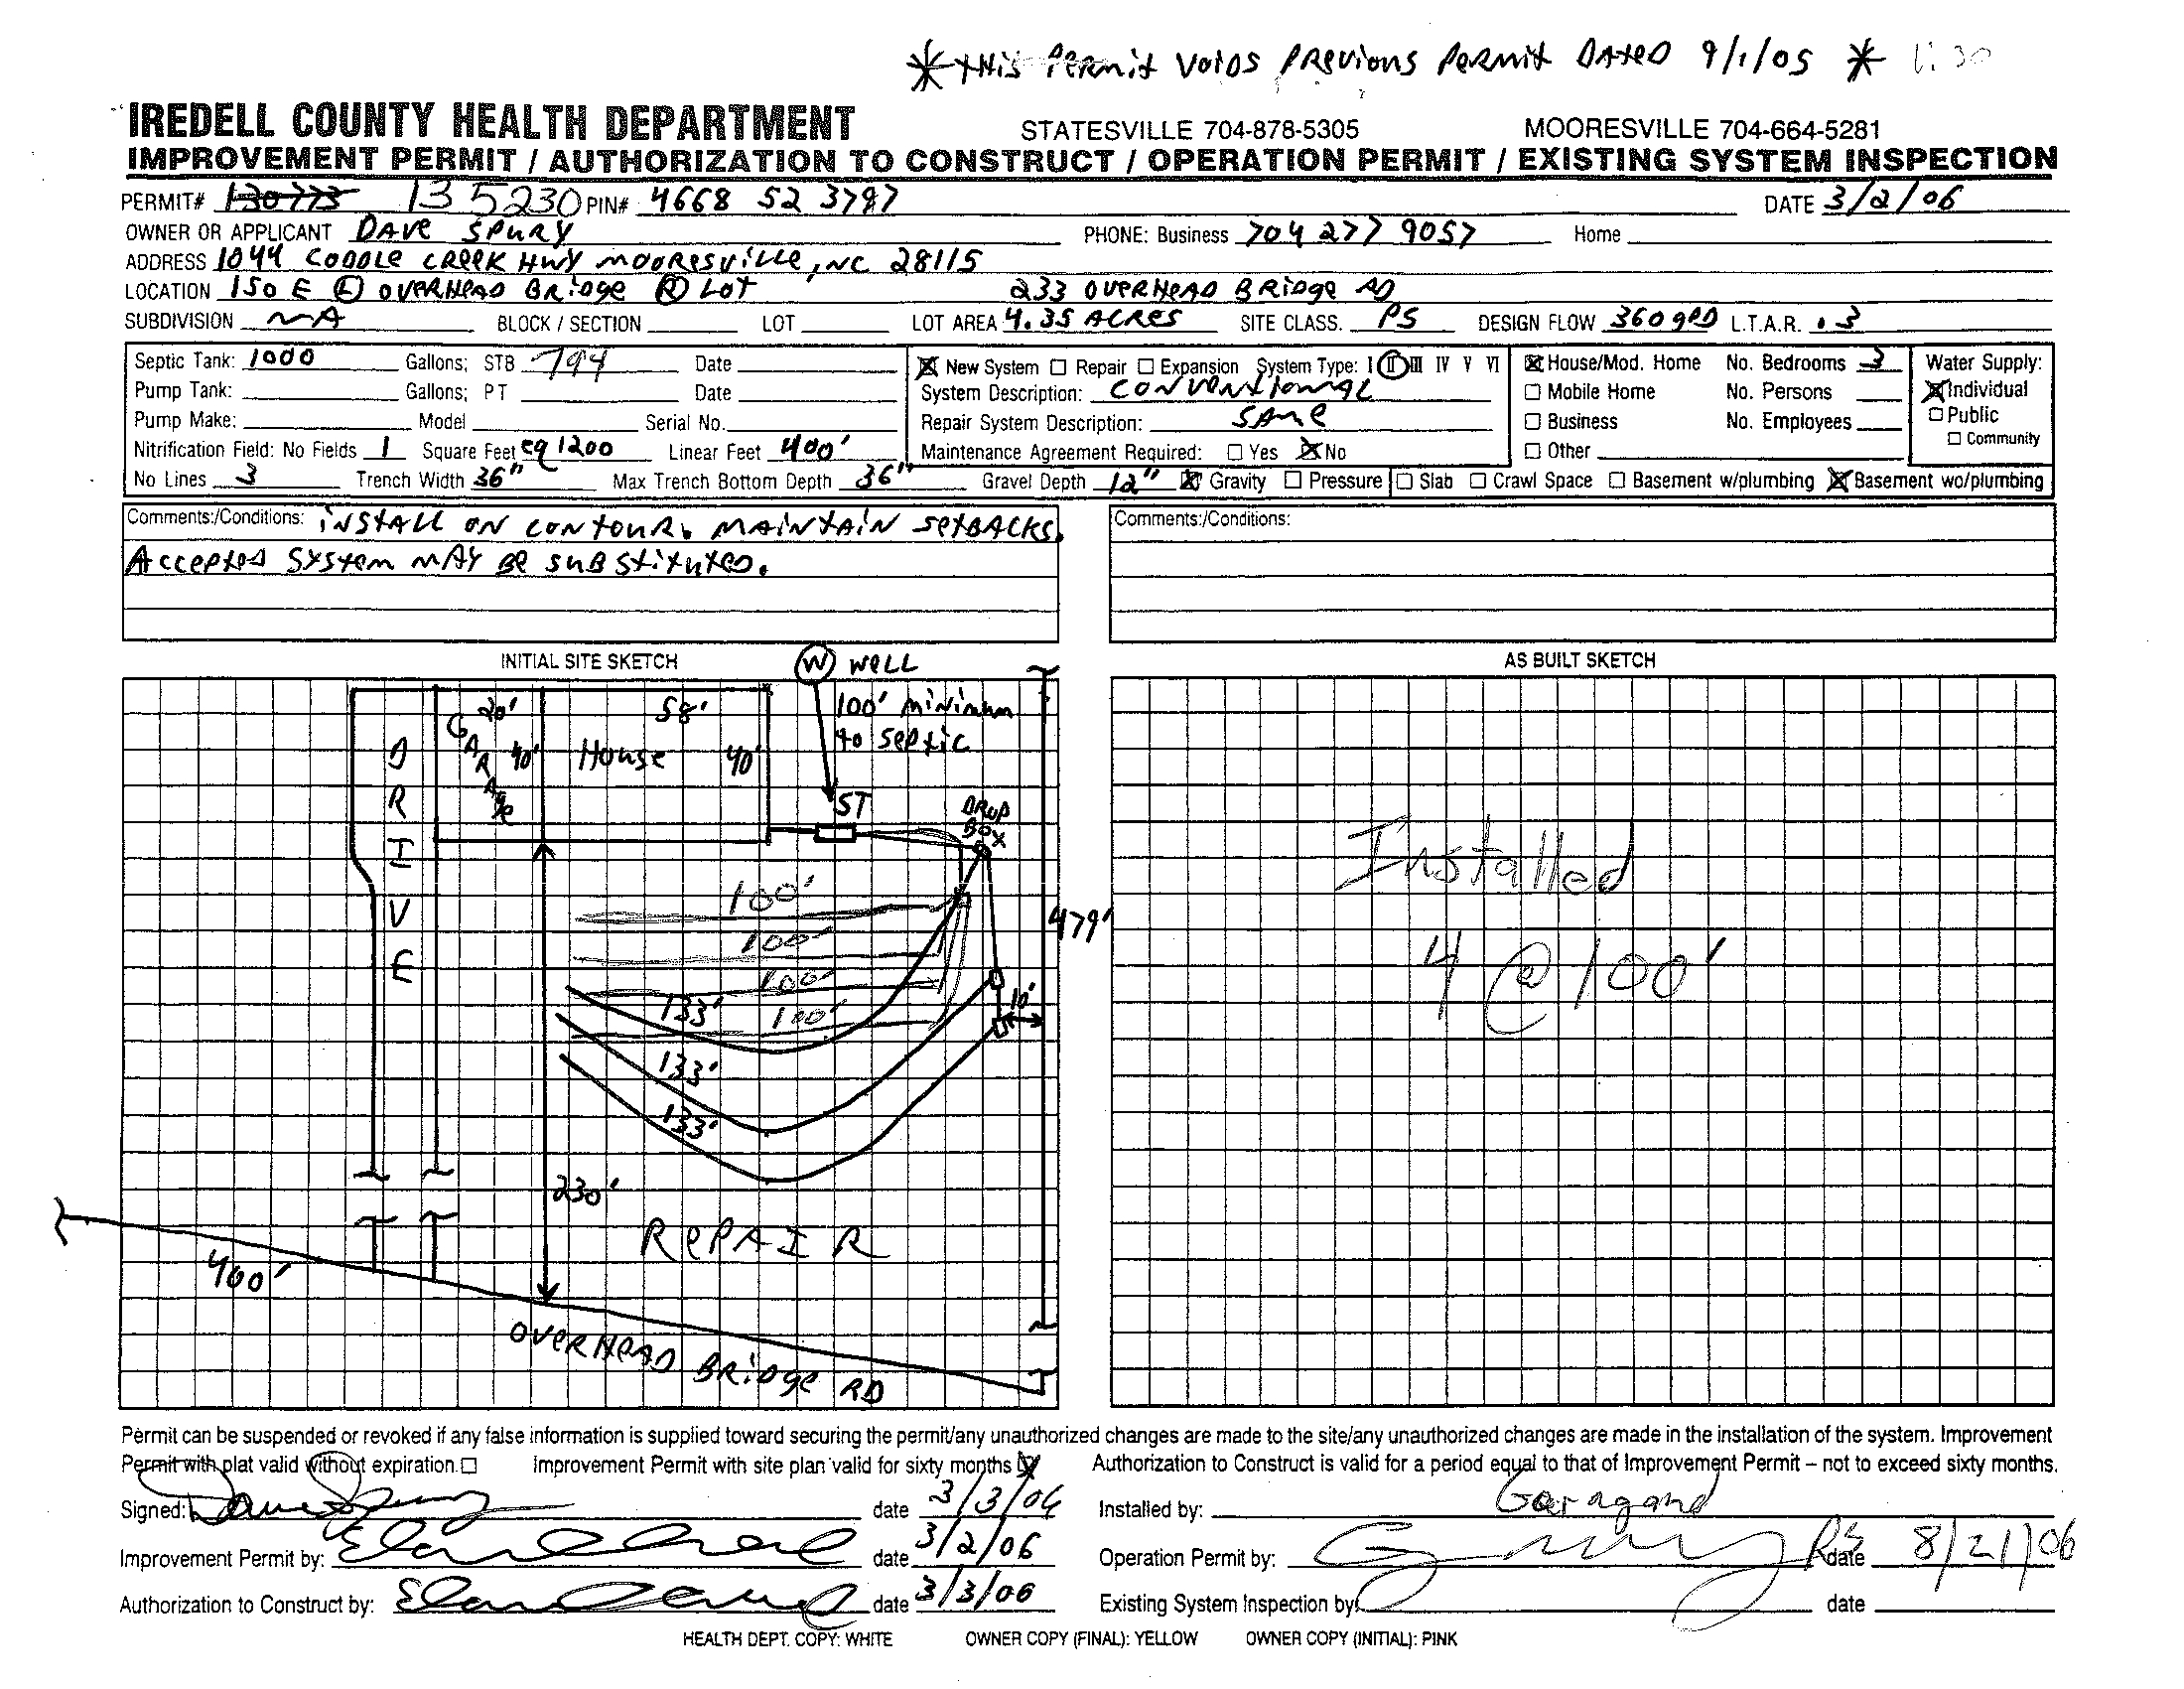 *THis Permit VoiDS PREvious PeRmit DAteD 9/1/05 * 1:30
IREDELL COUNTY HEALTH DEPARTMENT STATESVILLE 704-878-5305 MOORESVILLE 704-664-5281
IMPROVEMENT PERMIT / AUTHORIZATION TO CONSTRUCT / OPERATION PERMIT / EXISTING SYSTEM INSPECTION
PERMIT# 130773 135230 PIN# 4668 52 3797 DATE 3/2/06
OWNER OR APPLICANT DAVe SPURY PHONE: Business 704 277 9057 Home
ADDRESS 1044 CODDLE CREEK HWY MOORESViLLe, NC 28115
LOCATION 150 E (L) OVERHEAD BRiDge (R) LOT 233 OVERHEAD BRiDge RD
SUBDIVISION NA BLOCK / SECTION LOT LOT AREA 4.35 ACRES SITE CLASS. PS DESIGN FLOW 360 gpD L.T.A.R. .3
Septic Tank: 1000 Gallons; STB 794 Date
Pump Tank: Gallons; PT Date
Pump Make: Model Serial No.
Nitrification Field: No Fields 1 Square Feet eq 1200 Linear Feet 400'
No Lines 3 Trench Width 36" Max Trench Bottom Depth 36" Gravel Depth 12" Gravity Pressure Slab Crawl Space Basement w/plumbing Basement wo/plumbing
New System Repair Expansion System Type: I II III IV V VI
System Description: CONVENtIONAL
Repair System Description: SAMe
Maintenance Agreement Required: Yes No
House/Mod. Home No. Bedrooms 3
Mobile Home No. Persons
Business No. Employees
Other
Water Supply:
Individual
Public
Community
Comments:/Conditions: iNSTALL ON CONTOUR. MAiNtAiN SetBACKS.
AccepteD SYStem MAY Be SuBStituteD.
Comments:/Conditions:
INITIAL SITE SKETCH
W WeLL
100' Minimum
to Septic
DRIVE
GARAge
20'
40'
House
58'
40'
ST
DROP
BOX
100'
100'
100'
100'
133'
133'
133'
10'
479'
230'
RePAIR
400'
OVERHEAD BRiDge RD
AS BUILT SKETCH
Installed
4 @ 100'
Permit can be suspended or revoked if any false information is supplied toward securing the permit/any unauthorized changes are made to the site/any unauthorized changes are made in the installation of the system. Improvement
Permit with plat valid without expiration. Improvement Permit with site plan valid for sixty months Authorization to Construct is valid for a period equal to that of Improvement Permit – not to exceed sixty months.
Signed: date 3/3/06 Installed by:
Improvement Permit by: date 3/2/06 Operation Permit by: RS date 8/21/06
Authorization to Construct by: date 3/3/06 Existing System Inspection by: date
HEALTH DEPT. COPY: WHITE OWNER COPY (FINAL): YELLOW OWNER COPY (INITIAL): PINK